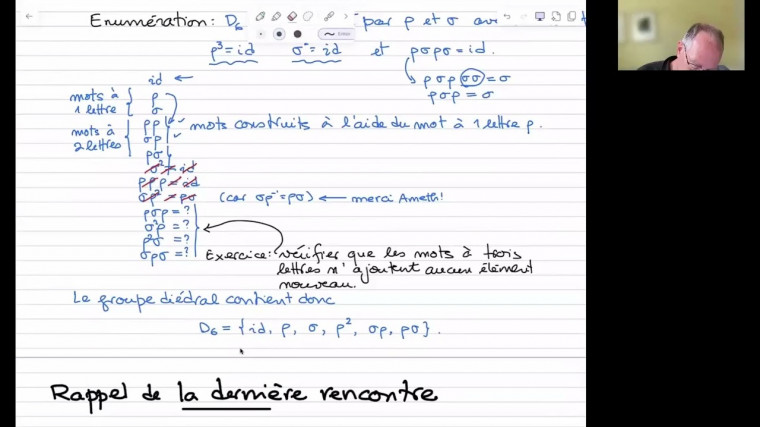 Enumération: D₆ par ρ et σ
ρ³ = id σ² = id et ρσρσ = id.
ρσρσσ = σ
ρσρ = σ
id ←
mots à 1 lettre { ρ
σ
mots à 2 lettres { ρρ
σρ
ρσ
mots construits à l'aide du mot à 1 lettre ρ.
σ² = id
ρρρ = id
σρ² = ρσ (car σρ⁻¹=ρσ) ← merci Ameth!
ρσρ = ?
σ²ρ = ?
ρ²σ = ?
σρσ = ?
Exercice: vérifier que les mots à trois
lettres n'ajoutent aucun élément
nouveau.
Le groupe diédral contient donc
D₆ = {id, ρ, σ, ρ², σρ, ρσ}.
Rappel de la dernière rencontre